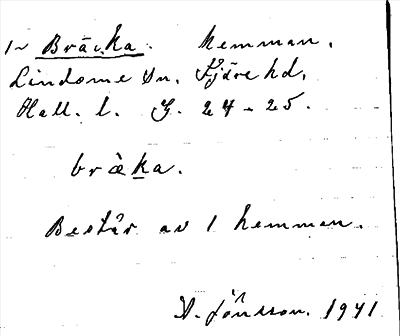 1~ Bräcka. Hemman.
Lindome Sn. Fjäre hd.
Hall. l. G. 24-25.
bràka.
Består av 1 hemman.
A. Jönsson. 1941